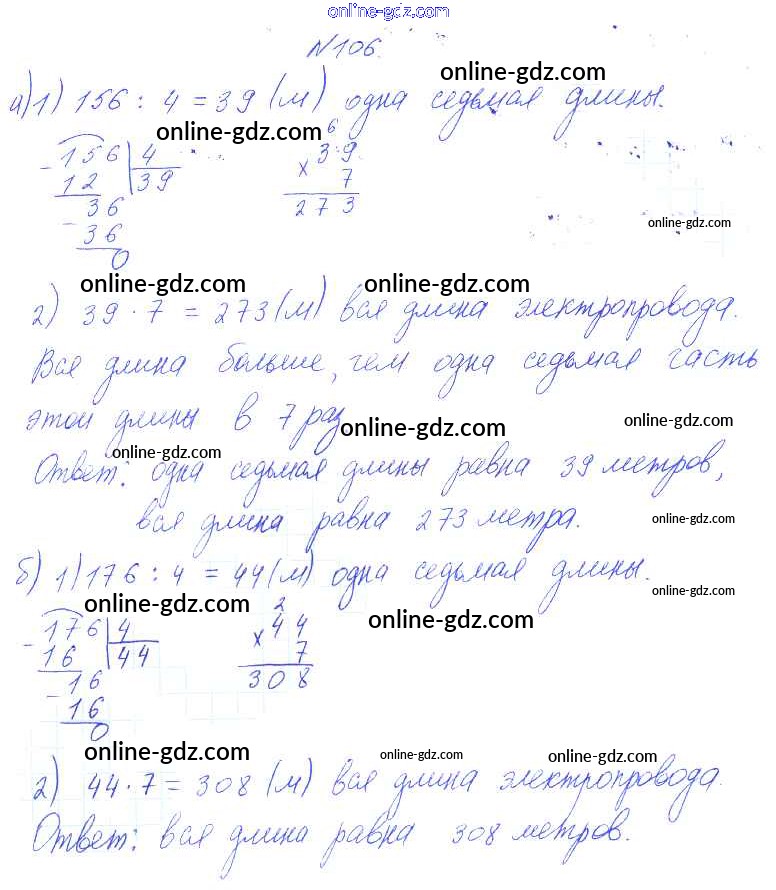 online-gdz.com
№106.
online-gdz.com
а) 1) 156 : 4 = 39 (м) одна седьмая длины.
online-gdz.com
6
- 156 4 39
12 39 × 7
36 273
- 36
online-gdz.com
0
online-gdz.com online-gdz.com
2) 39 · 7 = 273 (м) вся длина электропровода.
Вся длина больше, чем одна седьмая часть
этой длины в 7 раз
online-gdz.com online-gdz.com
online-gdz.com
Ответ: одна седьмая длины равна 39 метров,
вся длина равна 273 метра.
online-gdz.com
б) 1) 176 : 4 = 44 (м) одна седьмая длины.
online-gdz.com
online-gdz.com online-gdz.com
2
- 176 4 × 44
16 44 7
16 308
- 16
0
online-gdz.com online-gdz.com online-gdz.com
2) 44 · 7 = 308 (м) вся длина электропровода.
Ответ: вся длина равна 308 метров.